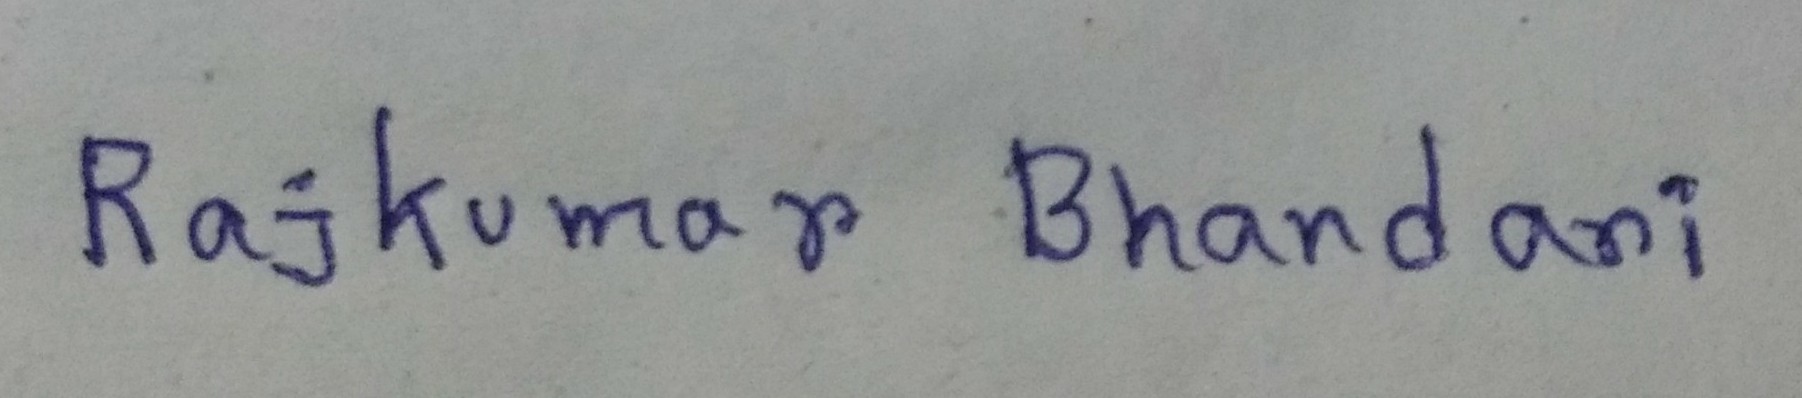 Rajkumar Bhandari